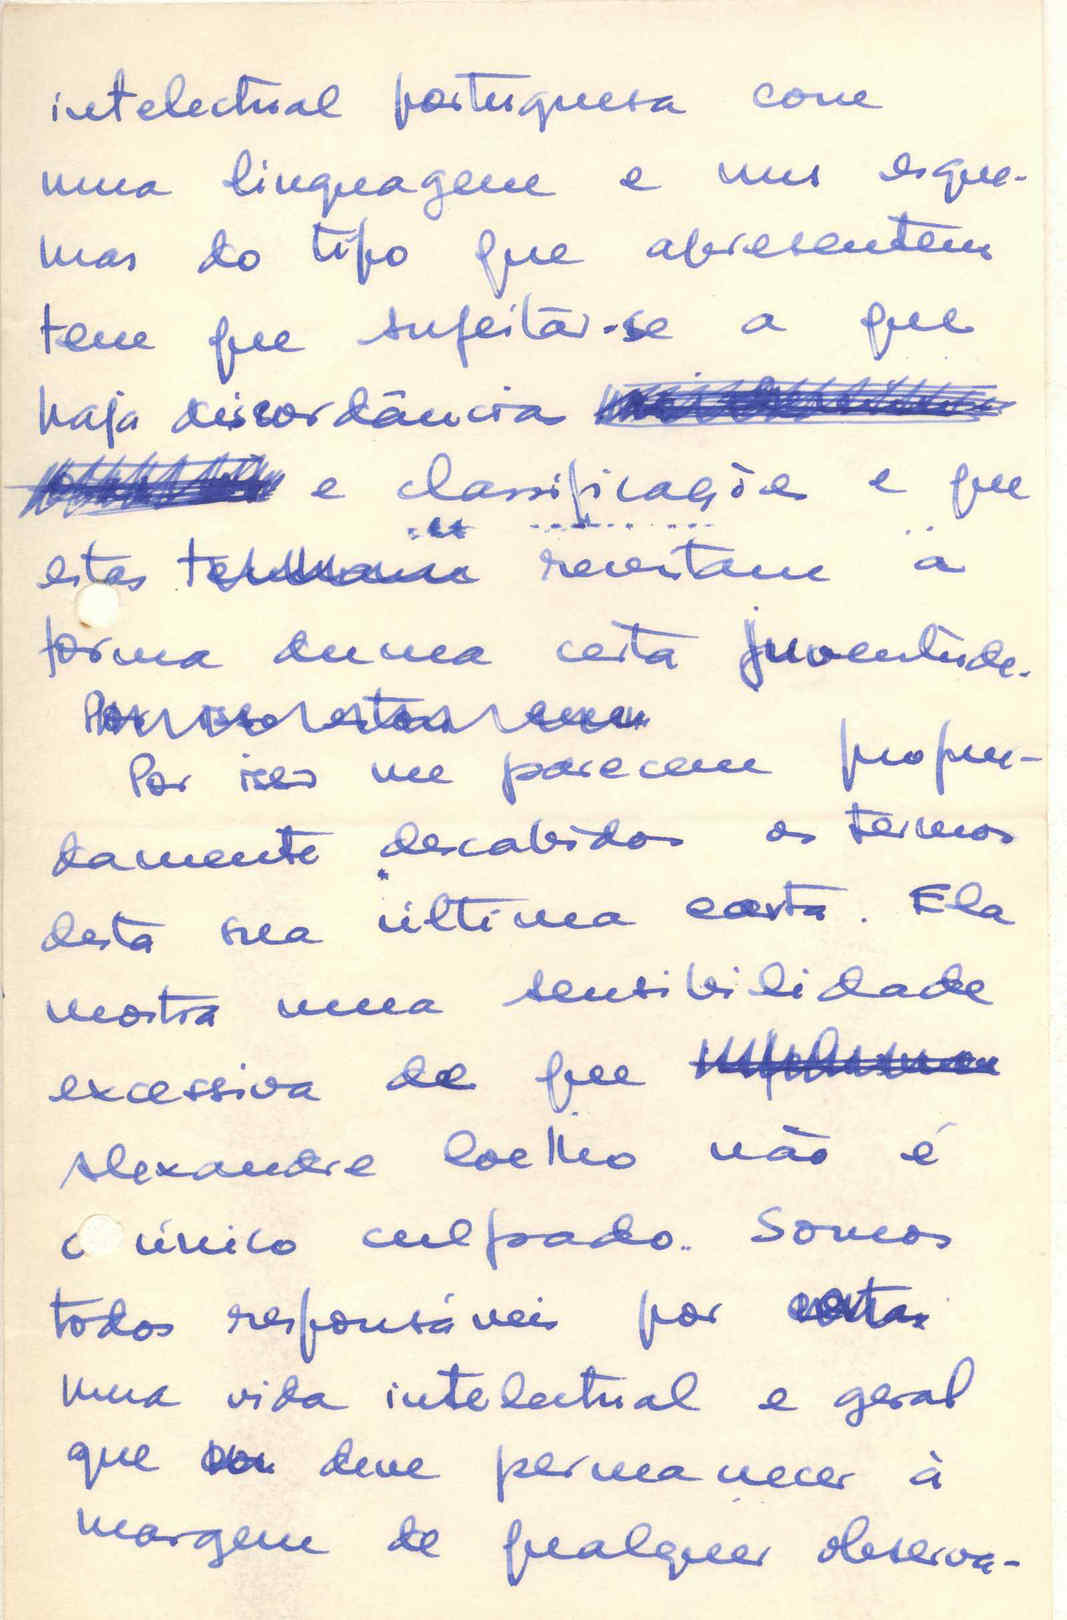 intelectual portuguesa com
uma linguagem e uns esque-
mas do tipo que apresentem
tem que sujeitar-se a que
haja discordância
e classificações e que
estas revistam a
forma duma certa juventude.
Por isso
Por isso me parecem profun-
damente descabidos os termos
desta sua última carta. Ela
mostra uma sensibilidade
excessiva de que
Alexandre Coelho não é
o único culpado. Somos
todos responsáveis por
uma vida intelectual e geral
que deve permanecer à
margem de qualquer observa-